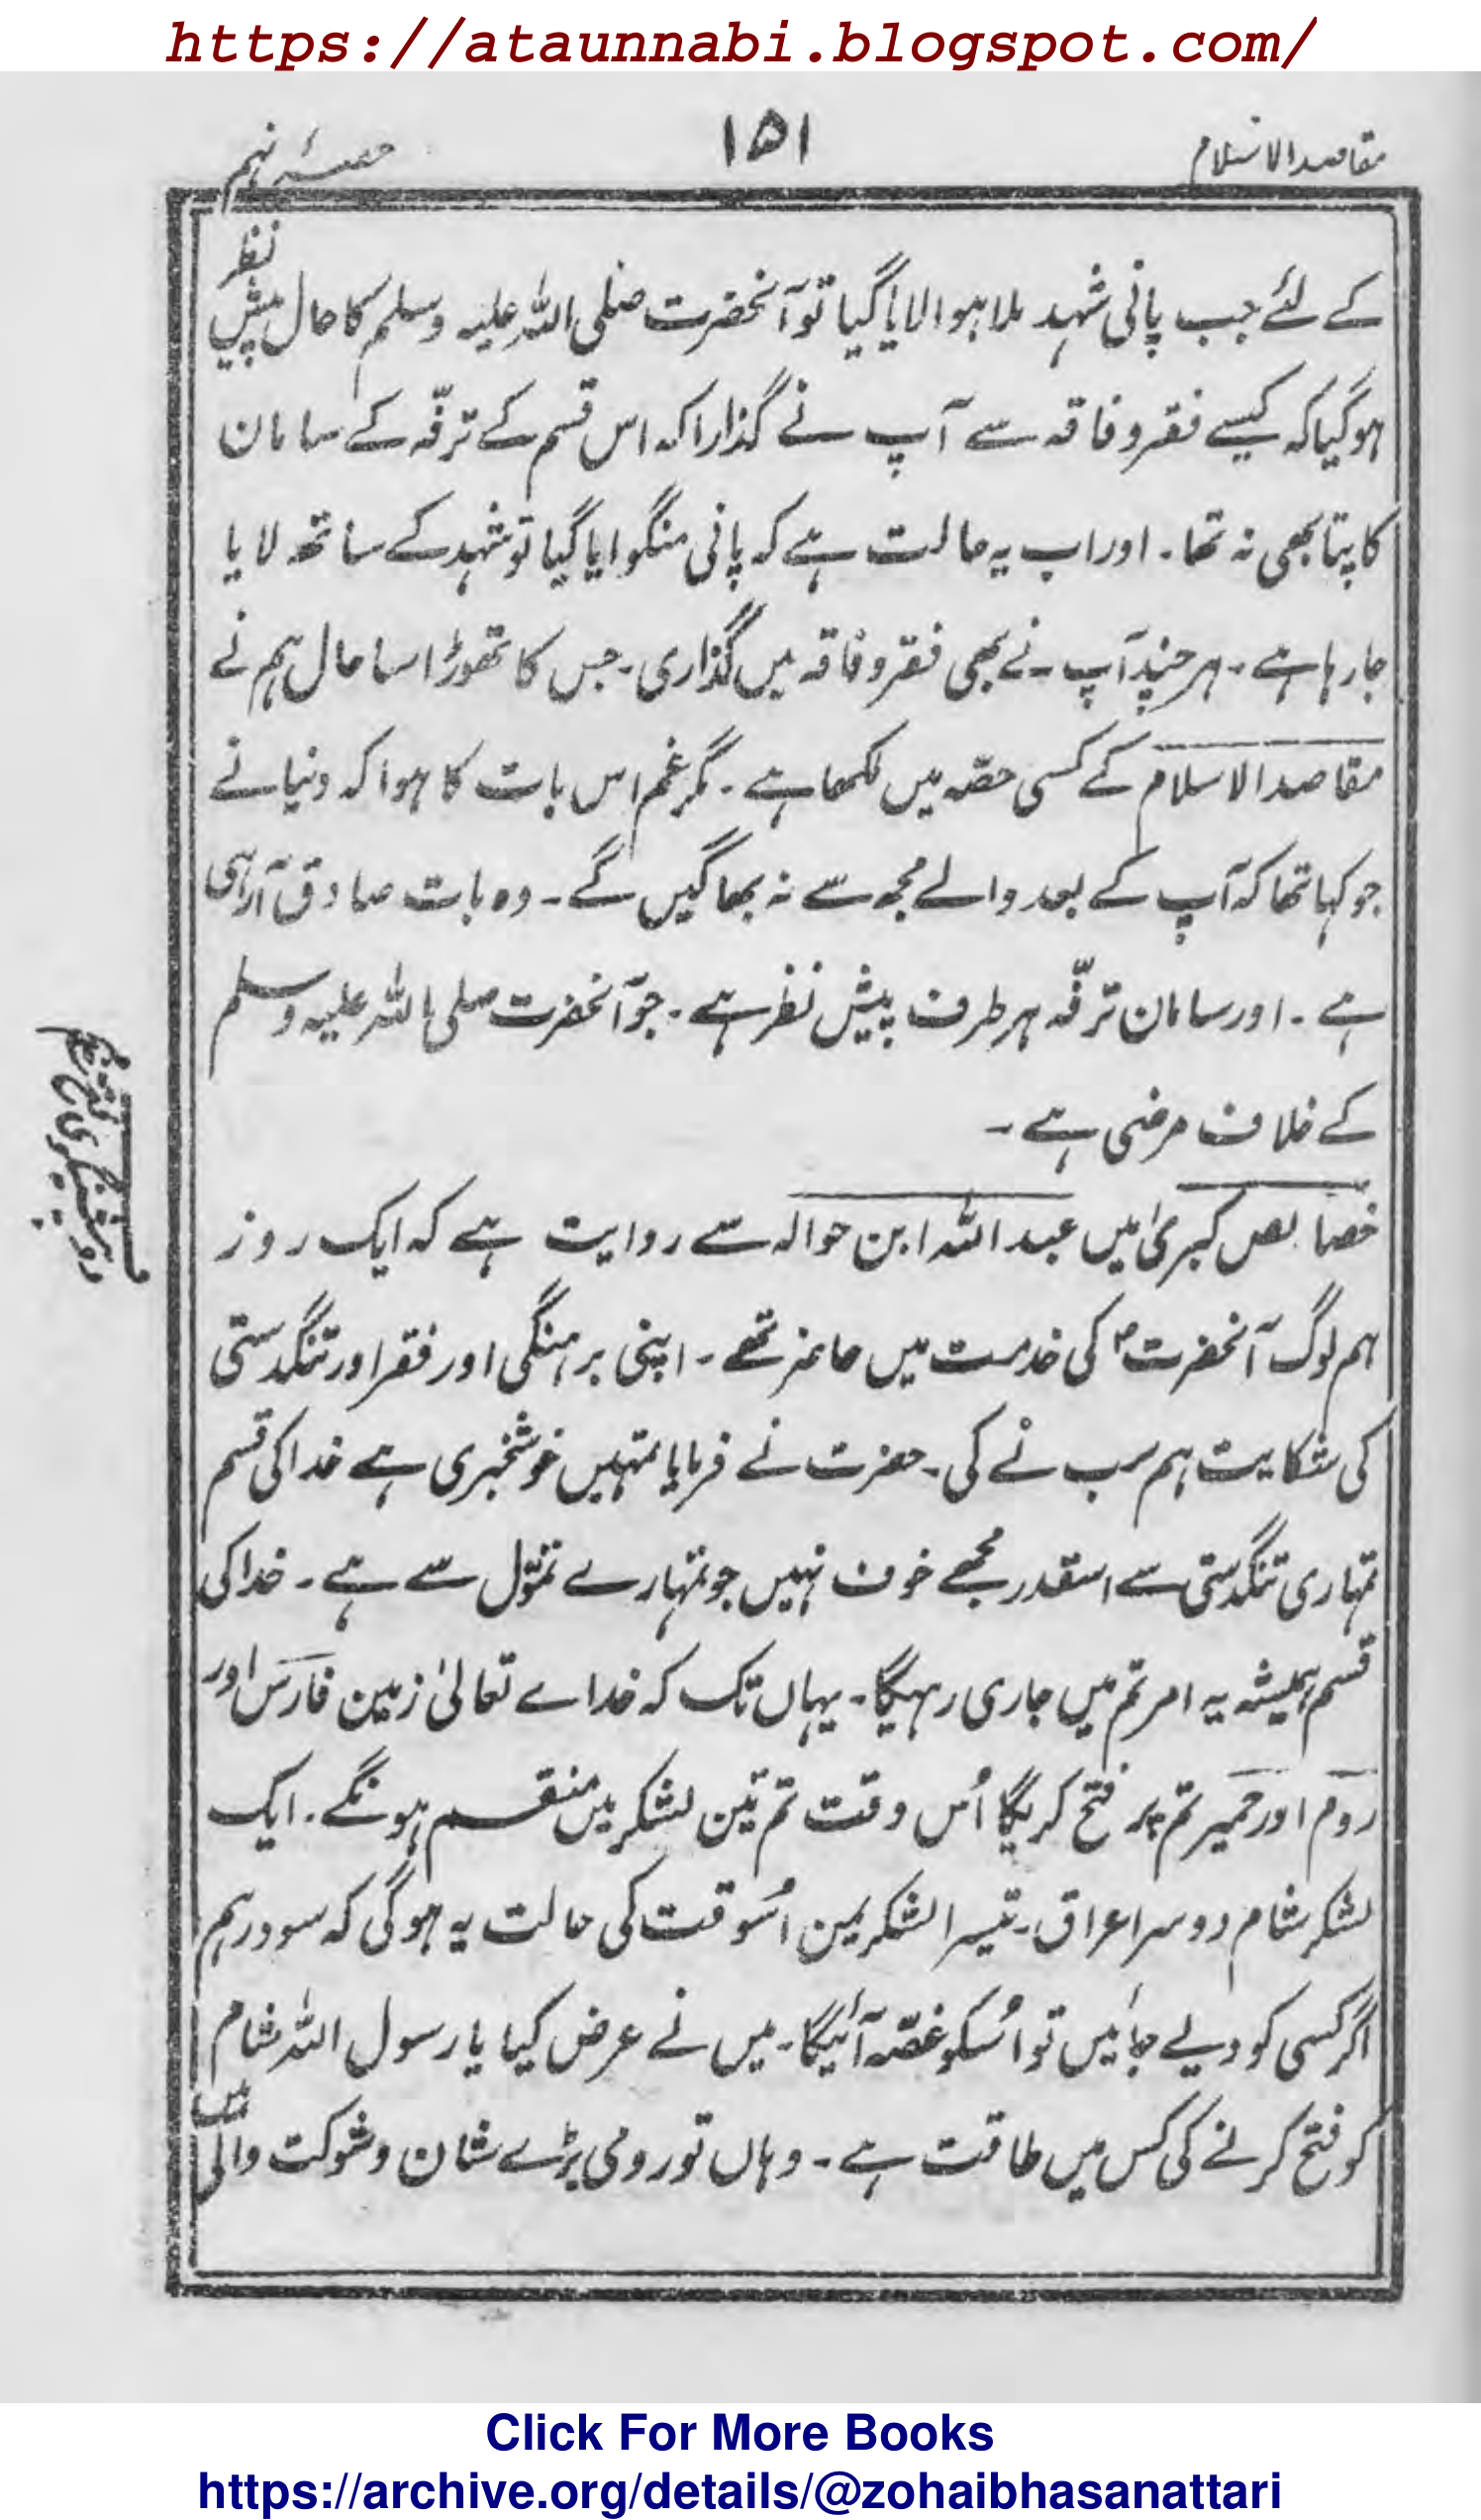 https://ataunnabi.blogspot.com/
مقاصد الاسلام ۱۵۱ حصۂ نہم
کے لئے جب پانی شہد ملا ہوا لایا گیا تو آنحضرت صلی اللہ علیہ وسلم کا حال پیش نظر
ہوگیا کہ کیسے فقر و فاقہ سے آپ نے گذارا کہ اس قسم کے ترفّہ کے سامان
کا پتا بھی نہ تھا۔ اور اب یہ حالت ہے کہ پانی منگوایا گیا تو شہد کے ساتھ لایا
جارہا ہے۔ ہر چند آپ نے بھی فقر و فاقہ میں گذاری۔ جس کا تھوڑا سا حال ہم نے
مقاصد الاسلام کے کسی حصّہ میں لکھا ہے۔ مگر غم اس بات کا ہوا کہ دنیا نے
جو کہا تھا کہ آپ کے بعد والے مجھ سے نہ بھاگیں گے۔ وہ بات صادق آرہی
ہے۔ اور سامان ترفّہ ہر طرف پیش نظر ہے۔ جو آنحضرت صلی اللہ علیہ وسلم
کے خلاف مرضی ہے۔
خصائص کبریٰ میں عبد اللہ ابن حوالہ سے روایت ہے کہ ایک روز
ہم لوگ آنحضرت ؐ کی خدمت میں حاضر تھے۔ اپنی برہنگی اور فقر اور تنگدستی
کی شکایت ہم سب نے کی۔ حضرت نے فرمایا تمہیں خوشخبری ہے خدا کی قسم
تمہاری تنگدستی سے اسقدر مجھے خوف نہیں جو تمہارے تموّل سے ہے۔ خدا کی
قسم ہمیشہ یہ امر تم میں جاری رہیگا۔ یہاں تک کہ خداے تعالیٰ زمین فارس اور
روم اور حمیر تم پر فتح کریگا اُس وقت تم تین لشکر میں منقسم ہونگے۔ ایک
لشکر شام دوسرا عراق۔ تیسرا لشکر یمن اُسوقت کی حالت یہ ہوگی کہ سو درہم
اگر کسی کو دیے جائیں تو اُسکو غصّہ آئیگا۔ میں نے عرض کیا یا رسول اللہ شام
کو فتح کرنے کی کس میں طاقت ہے۔ وہاں تو رومی بڑے شان و شوکت والے ہیں
Click For More Books
https://archive.org/details/@zohaibhasanattari